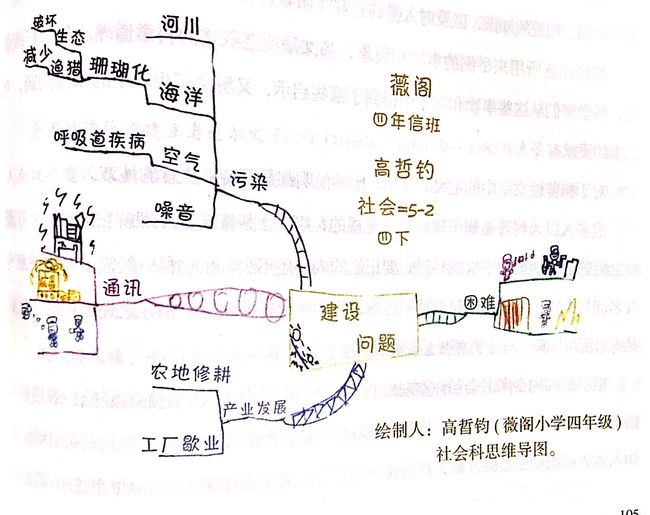 破坏
生态
减少
渔猎
珊瑚化
河川
海洋
呼吸道疾病
空气
噪音
污染
薇阁
四年信班
高哲钧
社会=5-2
四下
通讯
建设
问题
困难
农地修耕
产业发展
工厂歇业
绘制人：高哲钧(薇阁小学四年级)
社会科思维导图。
105